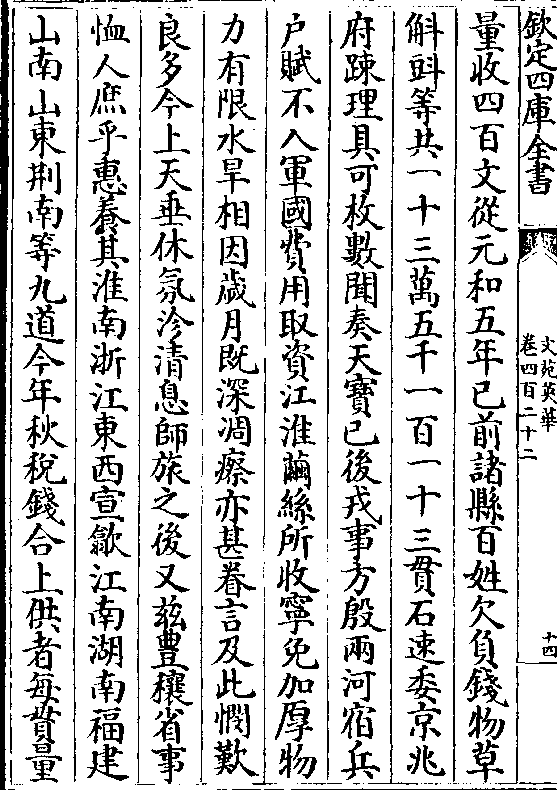 欽定四庫全書
文苑英華
卷四百二十二
十四
量收四百文從元和五年已前諸縣百姓欠負錢物草
斛㪷等共一十三萬五千一百一十三貫石速委京兆
府踈理具可枚數聞奏天寶已後戎事方殷兩河宿兵
户賦不入軍國費用取資江淮繭絲所收寧免加厚物
力有限水旱相因歲月既深凋瘵亦甚眷言及此憫歎
良多今上天垂休氛沴清息師旅之後又兹豊穰省事
恤人庶乎惠養其淮南浙江東西宣歙江南湖南福建
山南山東荆南等九道今年秋稅錢合上供者每貫量